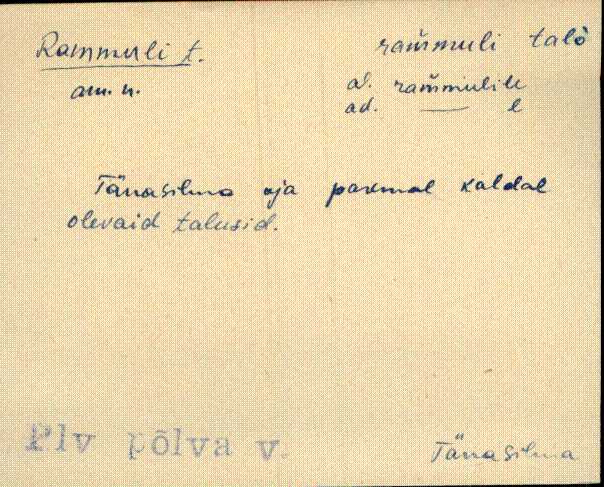 Rammuli t.
am. n.
ram̆muli talò
al. ram̆mulile
ad. —— l
Tänasilma oja paremal kaldal
olevaid talusid.
Plv põlva v.
Tänasilma